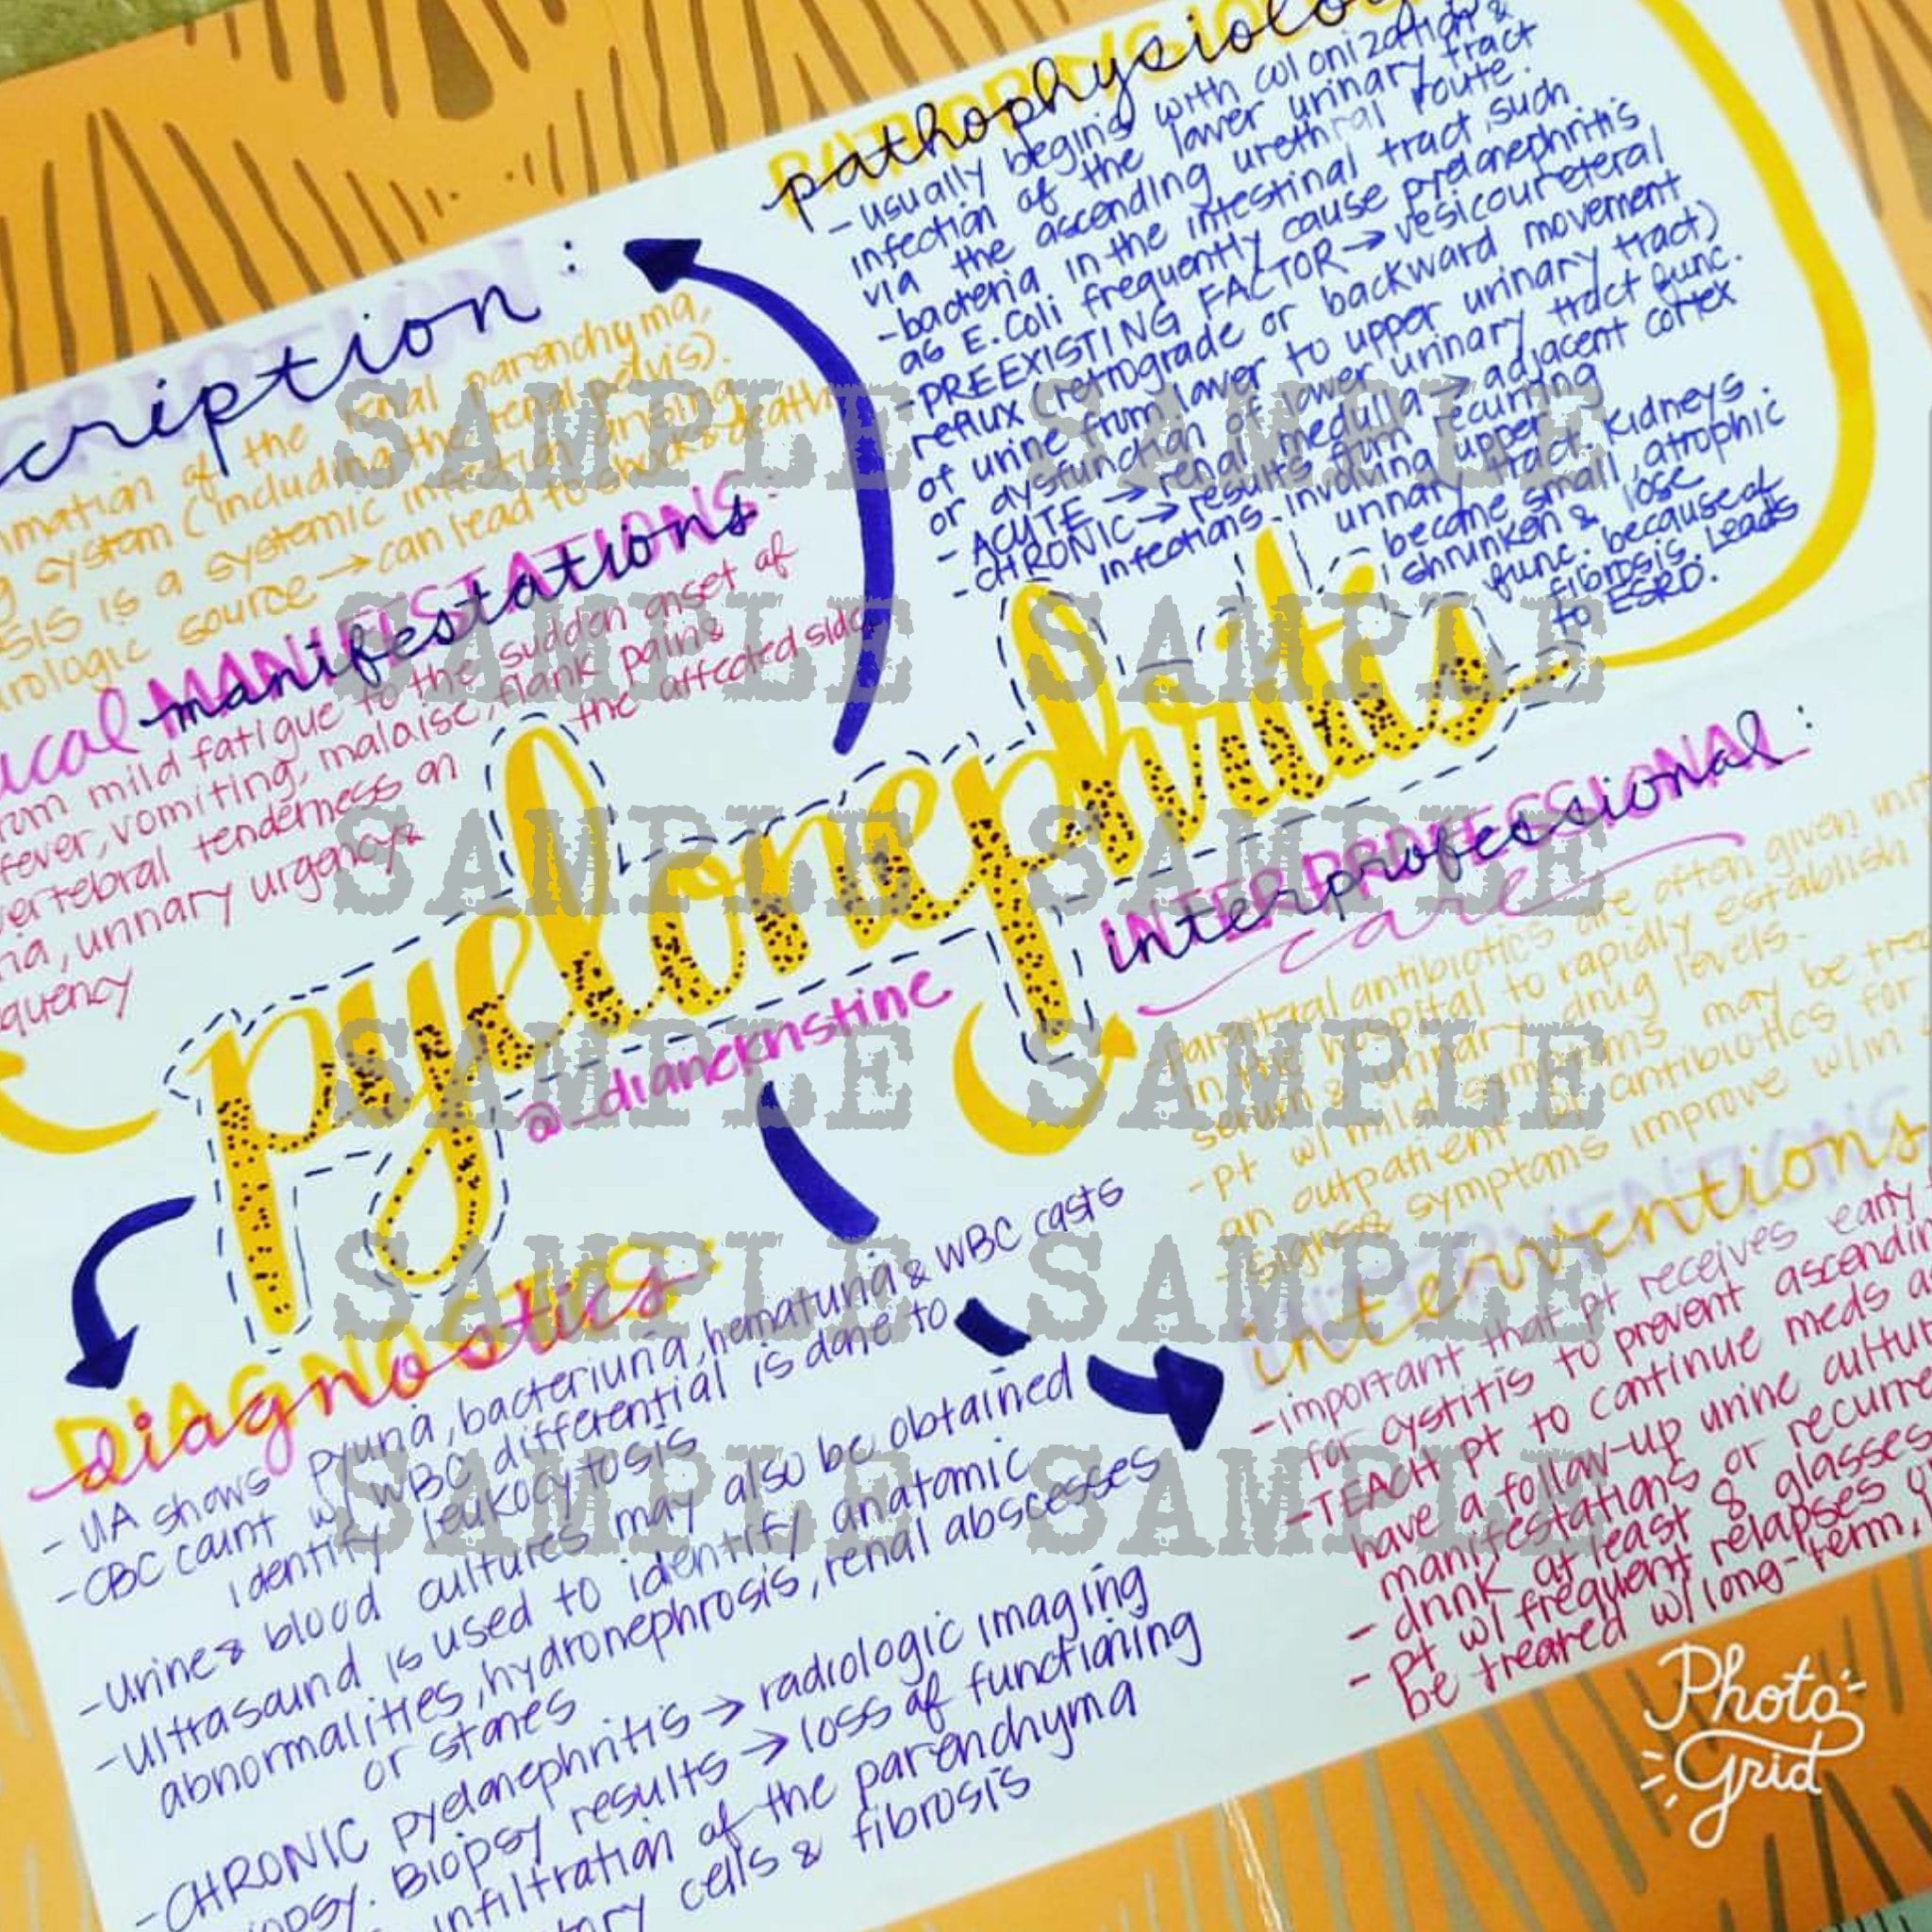 cription :
mmation of the renal parenchyma,
g system (including the renal pelvis).
SIS is a systemic infection arising
urologic source → can lead to shock & death
ical MANIFESTATIONS manifestations :
om mild fatigue to the sudden onset of
fever, vomiting, malaise, flank pain &
vertebral tenderness on the affected side
ia, urinary urgency &
quency
PATHOPHYSIOLO pathophysiolo
- usually begins with colonization &
infection of the lower urinary tract
via the ascending urethral route.
- bacteria in the intestinal tract, such
as E. Coli frequently cause pyelonephritis
- PREEXISTING FACTOR → vesicoureteral
reflux (retrograde or backward movement
of urine from lower to upper urinary tract)
or dysfunction of lower urinary tract func.
- ACUTE → renal medulla → adjacent cortex
- CHRONIC → results from recurring
infections involving upper
urinary tract. Kidneys
become small, atrophic,
shrunken & lose
func. because of
fibrosis. Leads
to ESRD.
pyelonephritis
@_dianekristine
INTERPROFESSIONAL interprofessional :
care
- Parenteral antibiotics are often given
in the hospital to rapidly establish
serum & urinary drug levels.
- pt w/ mild symptoms may be
an outpatient w/ antibiotics for
- signs & symptoms improve w/in
INTERVENTIONS interventions
- important that pt receives early
for cystitis to prevent ascendin
- TEACH pt to continue meds a
have a follow-up urine cultur
manifestations or recurre
- drink at least 8 glasses
- pt w/ frequent relapses
be treated w/ long-term,
DIAGNOSTICS diagnostics
- UA shows pyuria, bacteriuria, hematuria & WBC casts
- CBC count w/ WBC differential is done to
identify leukocytosis
- Urine & blood cultures may also be obtained
- Ultrasound is used to identify anatomic
abnormalities, hydronephrosis, renal abscesses
or stones
- CHRONIC pyelonephritis → radiologic imaging
opsy. Biopsy results → loss of functioning
infiltration of the parenchyma
tory cells & fibrosis
SAMPLE SAMPLE
SAMPLE SAMPLE
SAMPLE SAMPLE
SAMPLE SAMPLE
SAMPLE SAMPLE
SAMPLE SAMPLE
Photo
Grid